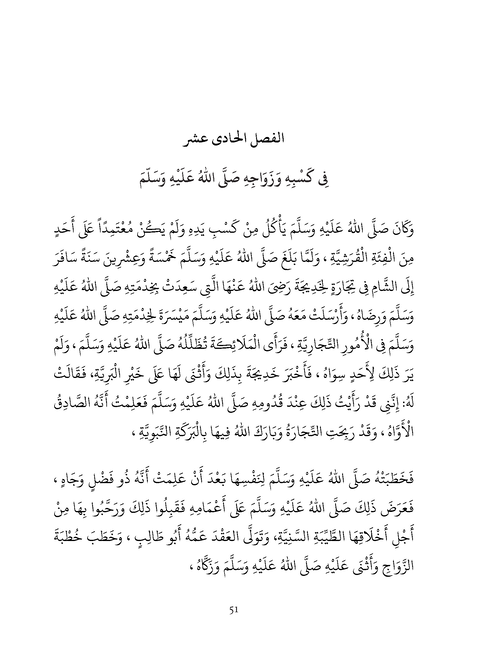 الفصل الحادى عشر
فِى كَسْبِهِ وَزَوَاجِهِ صَلَّى اللهُ عَلَيْهِ وَسَلَّمَ
وَكَانَ صَلَّى اللهُ عَلَيْهِ وَسَلَّمَ يَأْكُلُ مِنْ كَسْبِ يَدِهِ وَلَمْ يَكُنْ مُعْتَمِدًا عَلَى أَحَدٍ
مِنَ الْفِئَةِ الْقُرَشِيَّةِ ، وَلَمَّا بَلَغَ صَلَّى اللهُ عَلَيْهِ وَسَلَّمَ خَمْسَةً وَعِشْرِينَ سَنَةً سَافَرَ
إِلَى الشَّامِ فِى تِجَارَةٍ لِخَدِيجَةَ رَضِىَ اللهُ عَنْهَا الَّتِى سَعِدَتْ بِخِدْمَتِهِ صَلَّى اللهُ عَلَيْهِ
وَسَلَّمَ وَرِضَاهُ ، وَأَرْسَلَتْ مَعَهُ صَلَّى اللهُ عَلَيْهِ وَسَلَّمَ مَيْسَرَةَ لِخِدْمَتِهِ صَلَّى اللهُ عَلَيْهِ
وَسَلَّمَ فِى الْأُمُورِ التِّجَارِيَّةِ ، فَرَأَى الْمَلَائِكَةَ تُظَلِّلُهُ صَلَّى اللهُ عَلَيْهِ وَسَلَّمَ ، وَلَمْ
يَرَ ذَلِكَ لِأَحَدٍ سِوَاهُ ، فَأَخْبَرَ خَدِيجَةَ بِذَلِكَ وَأَثْنَى لَهَا عَلَى خَيْرِ الْبَرِيَّةِ، فَقَالَتْ
لَهُ: إِنَّنِى قَدْ رَأَيْتُ ذَلِكَ عِنْدَ قُدُومِهِ صَلَّى اللهُ عَلَيْهِ وَسَلَّمَ فَعَلِمْتُ أَنَّهُ الصَّادِقُ
الْأَوَّاهُ ، وَقَدْ رَبِحَتِ التِّجَارَةُ وَبَارَكَ اللهُ فِيهَا بِالْبَرَكَةِ النَّبَوِيَّةِ ،
فَخَطَبَتْهُ صَلَّى اللهُ عَلَيْهِ وَسَلَّمَ لِنَفْسِهَا بَعْدَ أَنْ عَلِمَتْ أَنَّهُ ذُو فَضْلٍ وَجَاهٍ ،
فَعَرَضَ ذَلِكَ صَلَّى اللهُ عَلَيْهِ وَسَلَّمَ عَلَى أَعْمَامِهِ فَقَبِلُوا ذَلِكَ وَرَحَّبُوا بِهَا مِنْ
أَجْلِ أَخْلَاقِهَا الطَّيِّبَةِ السَّنِيَّةِ، وَتَوَلَّى العَقْدَ عَمُّهُ أَبُو طَالِبٍ ، وَخَطَبَ خُطْبَةَ
الزَّوَاجِ وَأَثْنَى عَلَيْهِ صَلَّى اللهُ عَلَيْهِ وَسَلَّمَ وَزَكَّاهُ ،
51